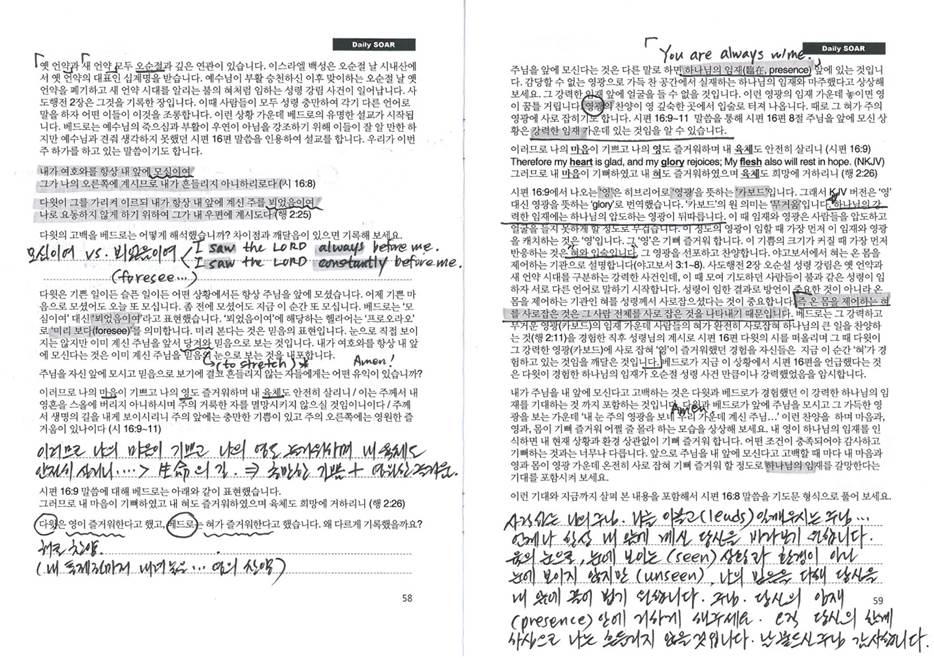 Daily SOAR
옛 언약과 새 언약 모두 오순절과 깊은 연관이 있습니다. 이스라엘 백성은 오순절 날 시내산에
서 옛 언약의 대표인 십계명을 받습니다. 예수님이 부활 승천하신 이후 맞이하는 오순절 날 옛
언약을 폐기하고 새 언약 시대를 알리는 불의 혀처럼 임하는 성령 강림 사건이 일어납니다. 사
도행전 2장은 그것을 기록한 장입니다. 이때 사람들이 모두 성령 충만하여 각기 다른 언어로
말을 하자 어떤 이들이 이것을 조롱합니다. 이런 상황 가운데 베드로의 유명한 설교가 시작됩
니다. 베드로는 예수님의 죽으심과 부활이 우연이 아님을 강조하기 위해 이들이 잘 알 만한 하
지만 예수님과 견줘 생각하지 못했던 시편 16편 말씀을 인용하여 설교를 합니다. 우리가 이번
주 하가를 하고 있는 말씀이기도 합니다.
내가 여호와를 항상 내 앞에 모심이여
그가 나의 오른쪽에 계시므로 내가 흔들리지 아니하리로다 (시 16:8)
다윗이 그를 가리켜 이르되 내가 항상 내 앞에 계신 주를 뵈었음이여
나로 요동하지 않게 하기 위하여 그가 내 우편에 계시도다 (행 2:25)
다윗의 고백을 베드로는 어떻게 해석했습니까? 차이점과 깨달음이 있으면 기록해 보세요.
모심이여 vs. 뵈었음이여 < I saw the LORD always before me.
I saw the LORD constantly before me.
(foresee...)
다윗은 기쁜 일이든 슬픈 일이든 어떤 상황에서든 항상 주님을 앞에 모셨습니다. 어제 기쁜 마
음으로 모셨어도 오늘 또 모십니다. 좀 전에 모셨어도 지금 이 순간 또 모십니다. 베드로는 '모
심이여' 대신 '뵈었음이여'라고 표현했습니다. '뵈었음이여'에 해당하는 헬라어는 '프로오라오'
로 '미리 보다(foresee)'를 의미합니다. 미리 본다는 것은 믿음의 표현입니다. 눈으로 직접 보이
지는 않지만 이미 계신 주님을 앞서 당겨와 믿음으로 보는 것입니다. 내가 여호와를 항상 내 앞
에 모신다는 것은 이미 계신 주님을 믿음의 눈으로 보는 것을 내포합니다.
(to stretch) Amen!
주님을 자신 앞에 모시고 믿음으로 보기에 결코 흔들리지 않는 자들에게는 어떤 유익이 있습니까?
이러므로 나의 마음이 기쁘고 나의 영도 즐거워하며 내 육체도 안전히 살리니 / 이는 주께서 내
영혼을 스올에 버리지 아니하시며 주의 거룩한 자를 멸망시키지 않으실 것임이니이다 / 주께
서 생명의 길을 내게 보이시리니 주의 앞에는 충만한 기쁨이 있고 주의 오른쪽에는 영원한 즐
거움이 있나이다 (시 16:9–11)
이러므로 나의 마음이 기쁘고 나의 영도 즐거워하며 내 육체도
안전히 살리니.... > 生命의 길. ⇒ 충만한 기쁨 + 영원한 즐거움.
시편 16:9 말씀에 대해 베드로는 아래와 같이 표현했습니다.
그러므로 내 마음이 기뻐하였고 내 혀도 즐거워하였으며 육체도 희망에 거하리니 (행 2:26)
다윗은 영이 즐거워한다고 했고, 베드로는 혀가 즐거워한다고 했습니다. 왜 다르게 기록했을까요?
혀로 찬양.
(내 찬양)
58
Daily SOAR
「You are always w/me.
주님을 앞에 모신다는 것은 다른 말로 하면 하나님의 임재(臨在, presence) 앞에 있는 것입니
다. 감당할 수 없는 영광으로 가득 찬 공간에서 하나님의 강력한 임재와 마주했다고 상상해
보세요. 그 강력한 임재 앞에 얼굴을 들 수 없을 것입니다. 이런 영광의 임재 가운데 놓이면 영
이 꿈틀 거립니다. 영광의 찬양이 영 깊숙한 곳에서 입술로 터져 나옵니다. 때로 그 혀가 주의
영광에 사로 잡히기도 합니다. 시편 16:9–11 말씀을 통해 시편 16편 8절 주님을 앞에 모신 상
황은 강력한 임재 가운데 있는 것임을 알 수 있습니다.
이러므로 나의 마음이 기쁘고 나의 영도 즐거워하며 내 육체도 안전히 살리니 (시편 16:9)
Therefore my heart is glad, and my glory rejoices; My flesh also will rest in hope. (NKJV)
그러므로 내 마음이 기뻐하였고 내 혀도 즐거워하였으며 육체도 희망에 거하리니 (행 2:26)
시편 16:9에서 나오는 '영'은 히브리어로 '영광'을 뜻하는 '카보드'입니다. 그래서 KJV 버전은 '영'
대신 영광을 뜻하는 'glory'로 번역했습니다. '카보드'의 원 의미는 '무거움'입니다. 하나님의 강
력한 임재에는 하나님의 압도하는 영광이 뒤따릅니다. 이 때 임재와 영광은 사람들을 압도하고
얼굴을 들지 못하게 할 정도로 무겁습니다. 이 정도의 영광이 임할 때 가장 먼저 이 임재와 영광
을 캐치하는 것은 '영'입니다. 그 '영'은 기뻐 즐거워 합니다. 이 기쁨의 크기가 커질 때 가장 먼저
반응하는 것은 혀와 입술입니다. 그 영광을 선포하고 찬양하는 것입니다. 야고보서에서 혀는 온 몸을
제어하는 기관으로 설명합니다(야고보서 3:1–8). 사도행전 2장 오순절 성령 강림은 옛 언약과
새 언약 시대를 구분하는 강력한 사건인데, 이 때 모여 기도하던 사람들이 불과 같은 성령이 임
하자 서로 다른 언어로 말하기 시작합니다. 성령이 임한 결과로 방언이 중요한 것이 아니라 온
몸을 제어하는 기관인 혀를 성령께서 사로잡으셨다는 것이 중요합니다. 즉 온 몸을 제어하는 혀
를 사로잡은 것은 그 사람 전체를 사로 잡은 것을 나타내기 때문입니다. 베드로는 그 강력하고
무거운 영광(카보드)의 임재 가운데 사람들의 혀가 완전히 사로잡혀 하나님의 큰 일을 찬양하
는 것(행 2:11)을 경험한 직후 성령님의 계시로 시편 16편 다윗의 시를 떠올리며 그 때 다윗이
그 강력한 영광(카보드)에 사로 잡혀 '영'이 즐거워했던 경험을 자신들은 지금 이 순간 '혀'가 경
험하고 있는 것임을 깨달은 것입니다. 베드로가 지금 이 상황에서 시편 16편을 언급했다는 것
은 다윗이 경험한 하나님의 임재가 오순절 성령 사건 만큼이나 강력했었음을 암시합니다.
내가 주님을 내 앞에 모신다고 고백하는 것은 다윗과 베드로가 경험했던 이 강력한 하나님의 임
재를 기대하는 것 까지 포함하는 것입니다. 다윗과 베드로가 앞에 주님을 모시고 그 가득한 영
Amen!
광을 보는 가운데 '내 눈 주의 영광을 보네 우리 가운데 계신 주님...' 이런 찬양을 하며 마음과,
영과, 몸이 기뻐 즐거워 어쩔 줄 몰라 하는 모습을 상상해 보세요. 내 영이 하나님의 임재를 인
식하면 내 현재 상황과 환경 상관없이 기뻐 즐거워 합니다. 어떤 조건이 충족되어야 감사하고
기뻐하는 것과는 너무나 다릅니다. 앞으로 주님을 내 앞에 모신다고 고백할 때 마다 내 마음과
영과 몸이 영광 가운데 온전히 사로 잡혀 기뻐 즐거워 할 정도로 하나님의 임재를 갈망한다는
기대를 포함시켜 보세요.
이런 기대와 지금까지 살펴 본 내용을 포함해서 시편 16:8 말씀을 기도문 형식으로 풀어 보세요.
사랑하는 나의 주님. 나를 이끄고(leads) 일깨우시는 주님...
언제나 항상 내 앞에 계신 당신을 바라보기 원합니다.
육의 눈으로, 눈에 보이는 (seen) 상황과 환경이 아닌
눈에 보이지 않지만 (unseen), 나의 믿음을 다해 당신을
내 앞에 모시기 원합니다. 주님. 당신의 임재
59
(presence) 안에 거하게 해주세요. 오직 당신의 함께
하심으로 나는 흔들리지 않을 것입니다. 날 붙드신 주님 감사합니다.